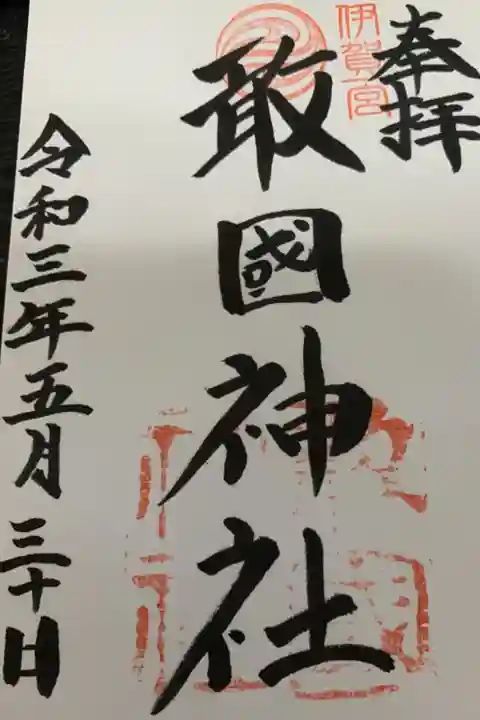 奉拝
伊賀一宮
敢國神社
令和三年五月三十日